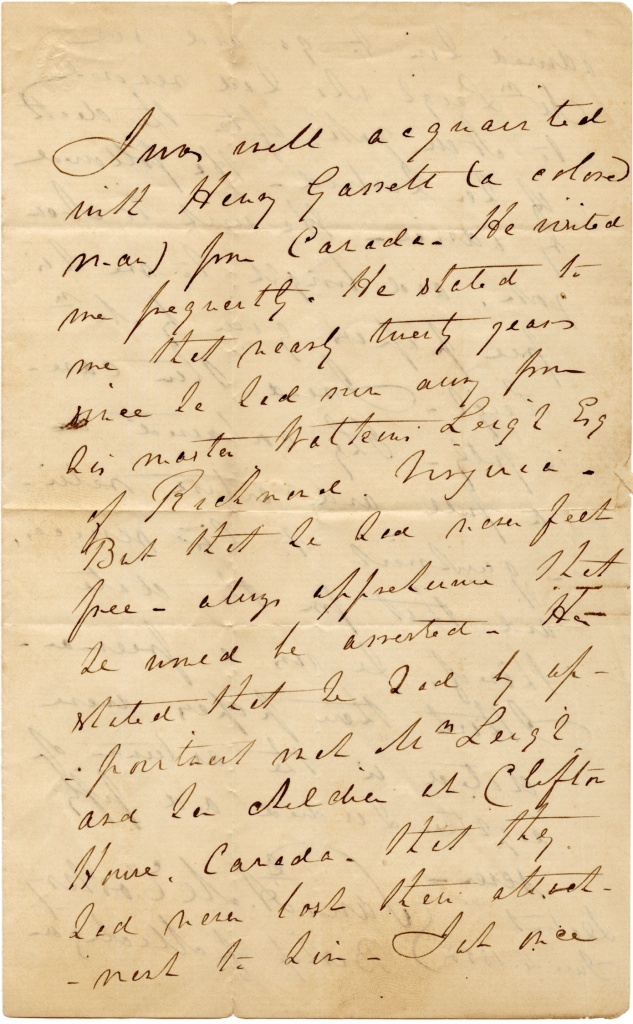 I was well acquainted
with Henry Garrett (a colored
man) from Canada. He visited
me frequently. He stated to
me that nearly twenty years
since he had run away from
his master Watkins Leigh Esq
of Richmond Virginia -
But that he had never felt
free - always apprehensive that
he would be arrested - He
stated that he had by ap-
-pointment met Mrs Leigh
and her children at Clifton
House, Canada - that they
had never lost their attach-
-ment to him - I at once